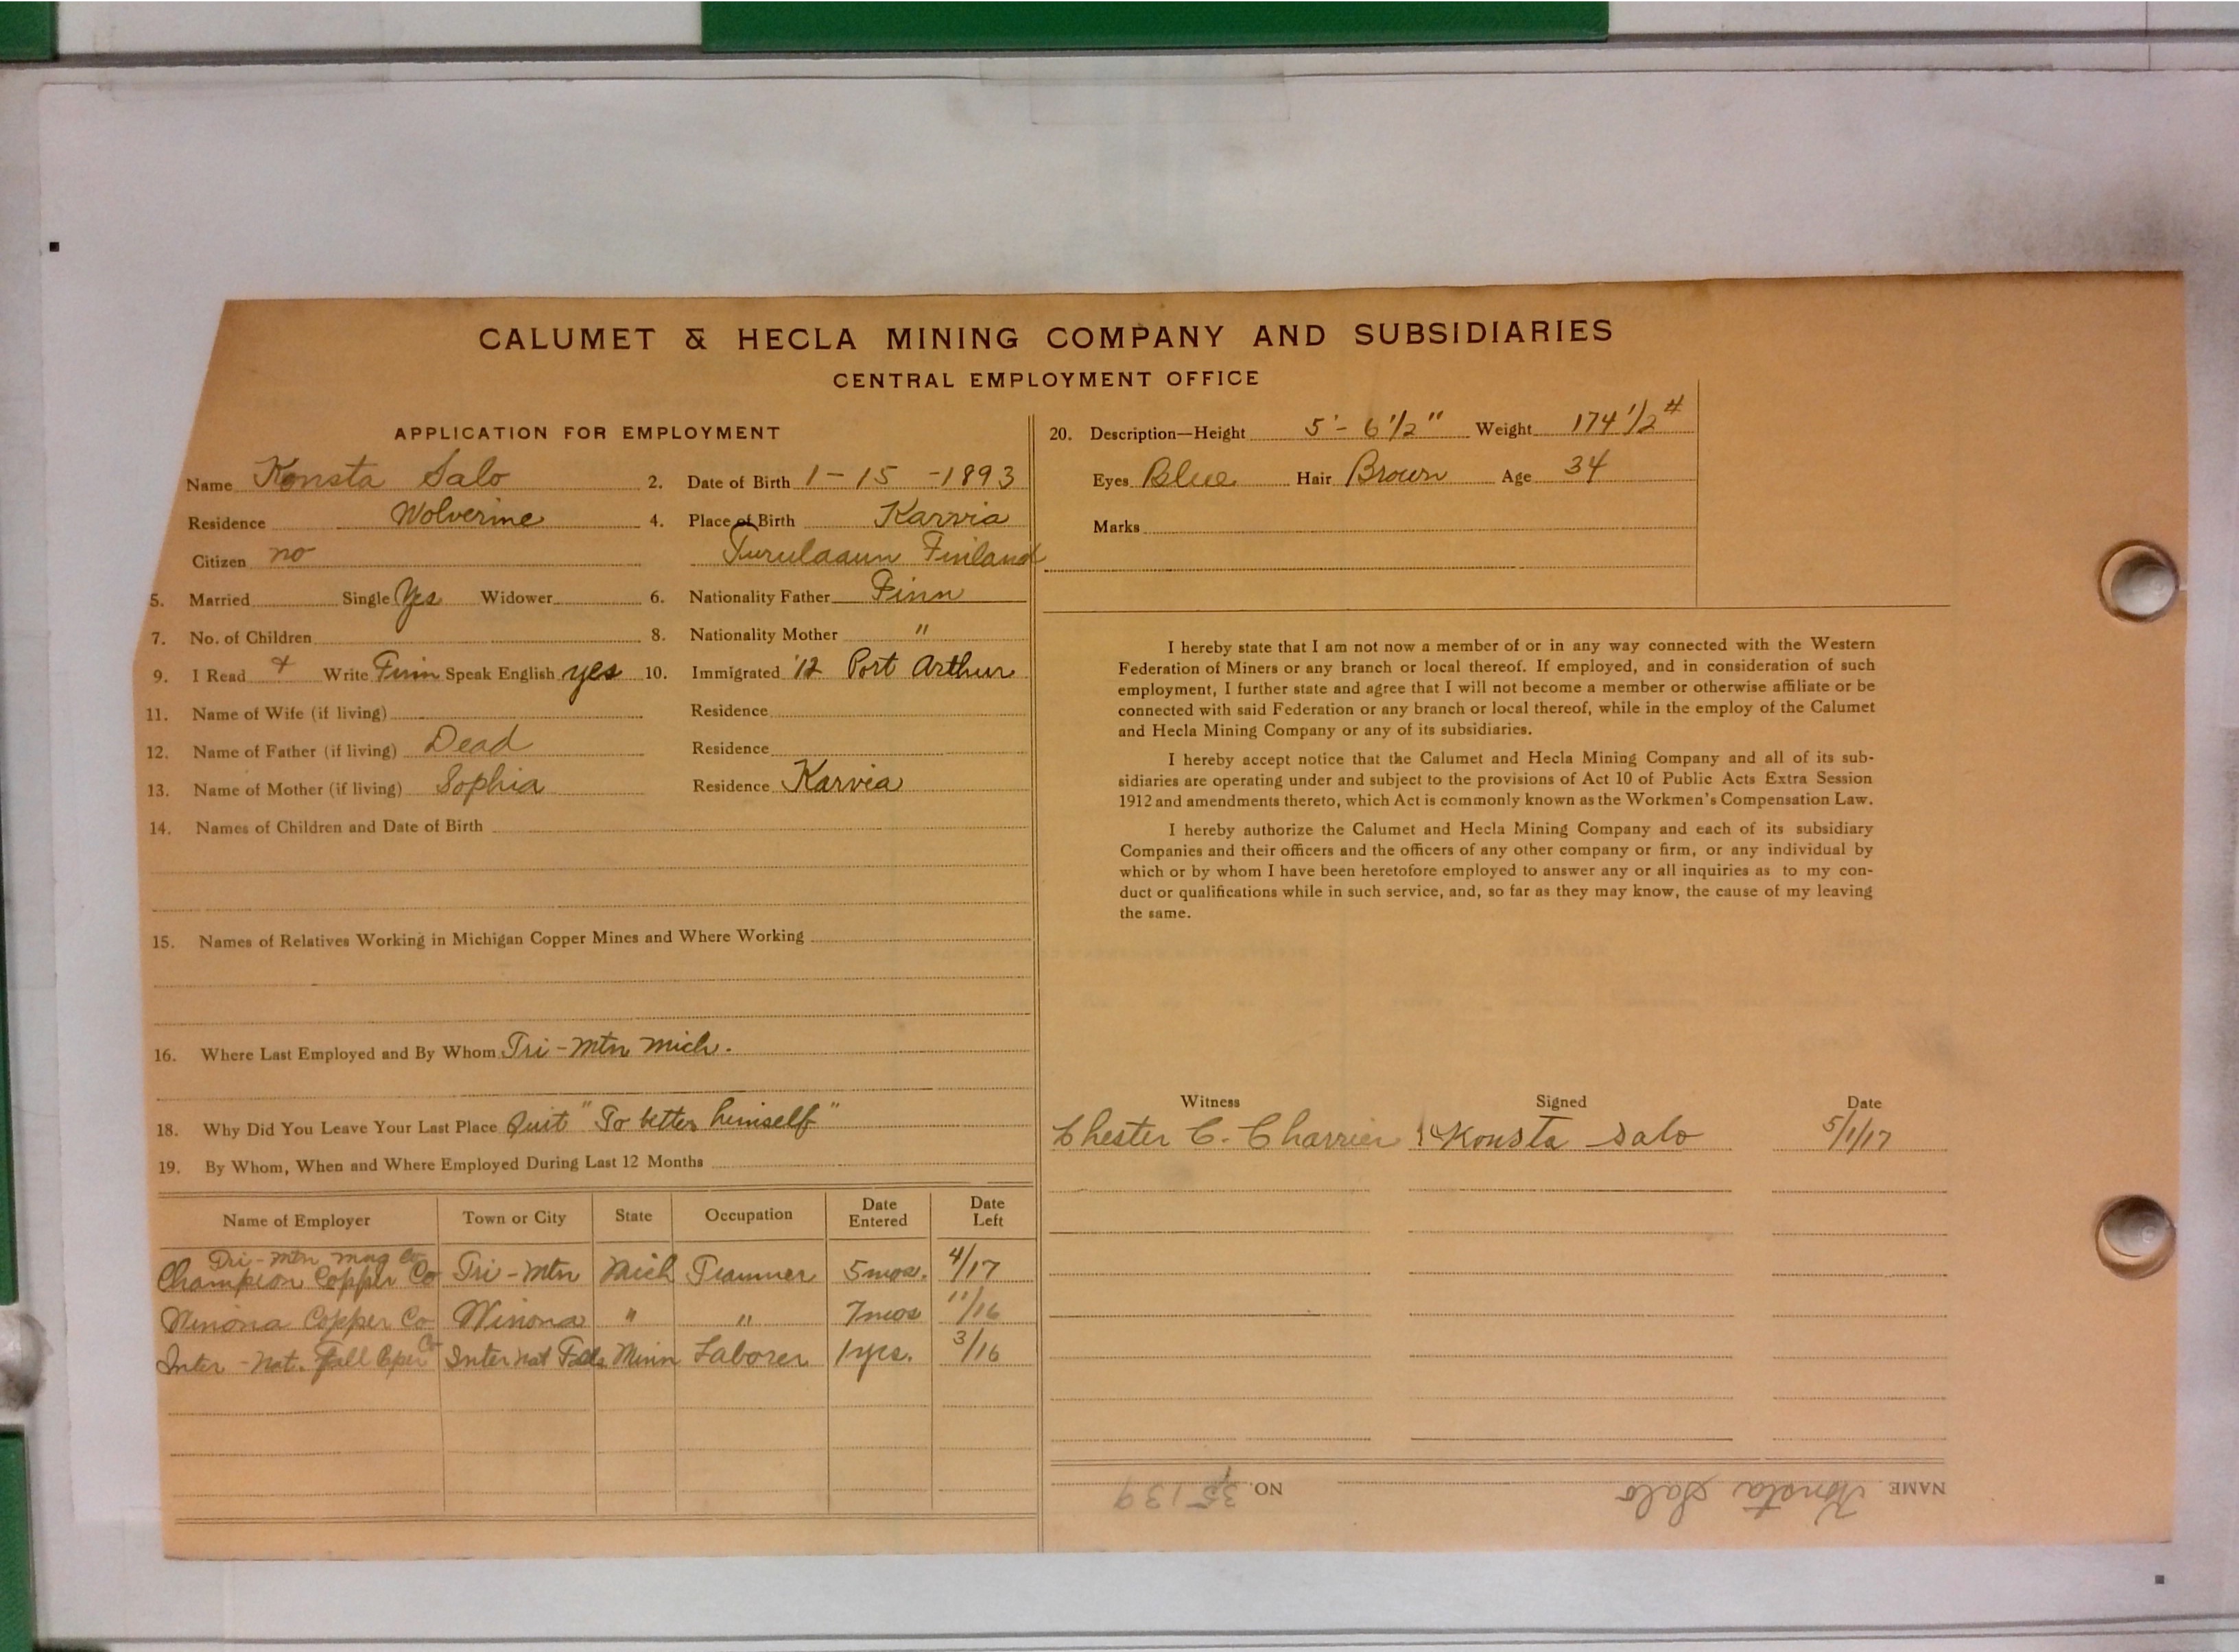 CALUMET & HECLA MINING COMPANY AND SUBSIDIARIES
CENTRAL EMPLOYMENT OFFICE
APPLICATION FOR EMPLOYMENT
Name Konsta Salo 2. Date of Birth 1-15-1893
Residence Wolverine 4. Place of Birth Karvia
Citizen no Turulaaun Finland
5. Married Single Yes Widower 6. Nationality Father Finn
7. No. of Children 8. Nationality Mother "
9. I Read + Write Finn Speak English yes 10. Immigrated '12 Port Arthur
11. Name of Wife (if living) Residence
12. Name of Father (if living) Dead Residence
13. Name of Mother (if living) Sophia Residence Karvia
14. Names of Children and Date of Birth
15. Names of Relatives Working in Michigan Copper Mines and Where Working
16. Where Last Employed and By Whom Tri-Mtn Mich.
18. Why Did You Leave Your Last Place Quit "To better himself"
19. By Whom, When and Where Employed During Last 12 Months
Name of Employer Town or City State Occupation Date Entered Date Left
Tri-Mtn Mng Co
Champion Copper Co Tri-Mtn Mich Trammer 5 mos. 4/17
Winona Copper Co Winona " " 7 mos 11/16
Inter-Nat. Fall Co Inter Nat Falls Minn Laborer 1 yrs. 3/16
20. Description—Height 5'-6 1/2" Weight 174 1/2 #
Eyes Blue Hair Brown Age 34
Marks
I hereby state that I am not now a member of or in any way connected with the Western
Federation of Miners or any branch or local thereof. If employed, and in consideration of such
employment, I further state and agree that I will not become a member or otherwise affiliate or be
connected with said Federation or any branch or local thereof, while in the employ of the Calumet
and Hecla Mining Company or any of its subsidiaries.
I hereby accept notice that the Calumet and Hecla Mining Company and all of its sub-
sidiaries are operating under and subject to the provisions of Act 10 of Public Acts Extra Session
1912 and amendments thereto, which Act is commonly known as the Workmen's Compensation Law.
I hereby authorize the Calumet and Hecla Mining Company and each of its subsidiary
Companies and their officers and the officers of any other company or firm, or any individual by
which or by whom I have been heretofore employed to answer any or all inquiries as to my con-
duct or qualifications while in such service, and, so far as they may know, the cause of my leaving
the same.
Witness Signed Date
Chester C. Charrier Konsta Salo 5/1/17
NAME Konsta Salo NO. 35139